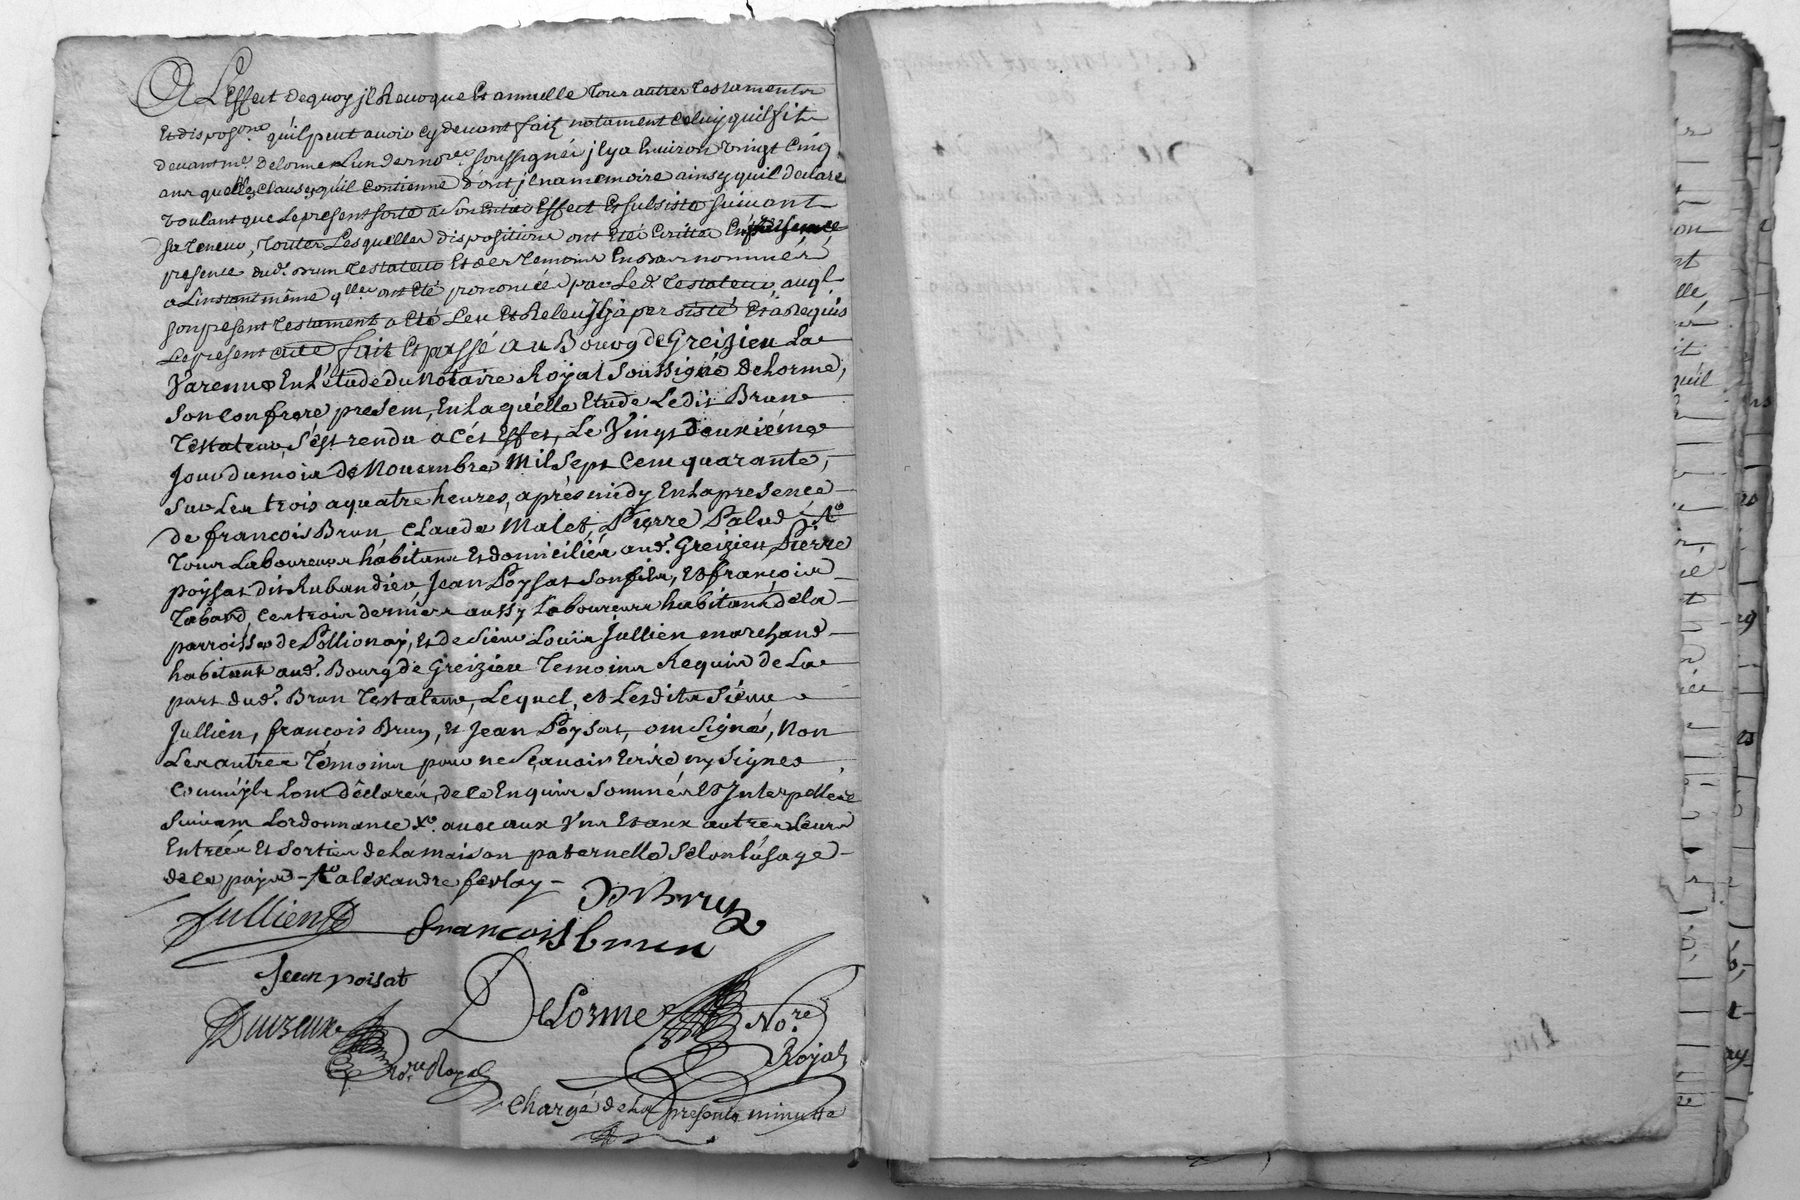 A Leffect dequoy jl Reuoque Et annulle Tous autres Testaments
Et disposone quil peut auoir cy deuant fait notament celuy quil fit
deuant me. Delorme Lun des nores. soussignés jl y a Enuiron vingt cinq
ans quelles clauses quil contienne dont jl na memoire ainsy quil declare
voulant que Le present sorte a son Entier Effect Et subsiste suiuant
sa teneur, Toutes Lesquelles dispositions ont Eté Ecrittes En
presence dud. Brun Testateur Et des Temoins En bas nommés
a Linstant même qlles ont Eté prononcées par Led. Testateur, auql
son present Testament a Eté Leu Et Releu Jl y à persisté Et à Requis
Le present acte fait Et passé au Bourg de Greizieu La
Varenne En L'étude du Notaire Royal soussigné delorme,
son confrere present, En Laquelle Etude Ledit Brun
Testateur s'est rendu a cés Effet, Le Vingt deuxiéme
Jour du mois de Nouembre Mil Sept Cent quarante,
sur Les trois a quatre heures après midy En La presence
de francois Brun, Claude Malet, Pierre Palud Ro
Tous Laboureurs habitans Et domiciliés aud. Greizieu, Pierre
poÿsat dit Rubandier, Jean Poysat son fils, Et françois
Tabard, Ces trois derniers aussy Laboureurs habitans de la
parroisse de Pollionaÿ, Et de Sieur Louis Jullien marchand
habitant aud. Bourg de Greizieu Temoins Requis de La
part dud. Brun Testateur, Lequel, et Lesdits Sieur
Jullien, francois Brun, Et Jean Poÿsat, ont signé, Non
Les autres Témoins pour ne sçauoir Ecrire ny signer
comm' jls Lont déclarés, de ce Enquis sommés Et Interpellés
suiuant Lordonnance Xo. auec aux Uns Et aux autres Leurs
Entrées Et sorties de La maison paternelle selon L'usage
de ce pays - Ro alexandre ferlay -
Jullien
D Brun
francois brun
Jean poisat
DeLorme Nore
Royal
Nore Royal
Chargé de La presente minutte